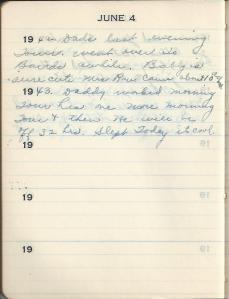 JUNE 4
19 42 Dads last evening
Tour. went over to
awhile. Baby is
sure cute Mrs Rowe came about 10 PM
19 43. Daddy worked morning
Tour has one more morning
Tour & then he will be
off 32 hrs. Slept Today it cool.
19
19
19